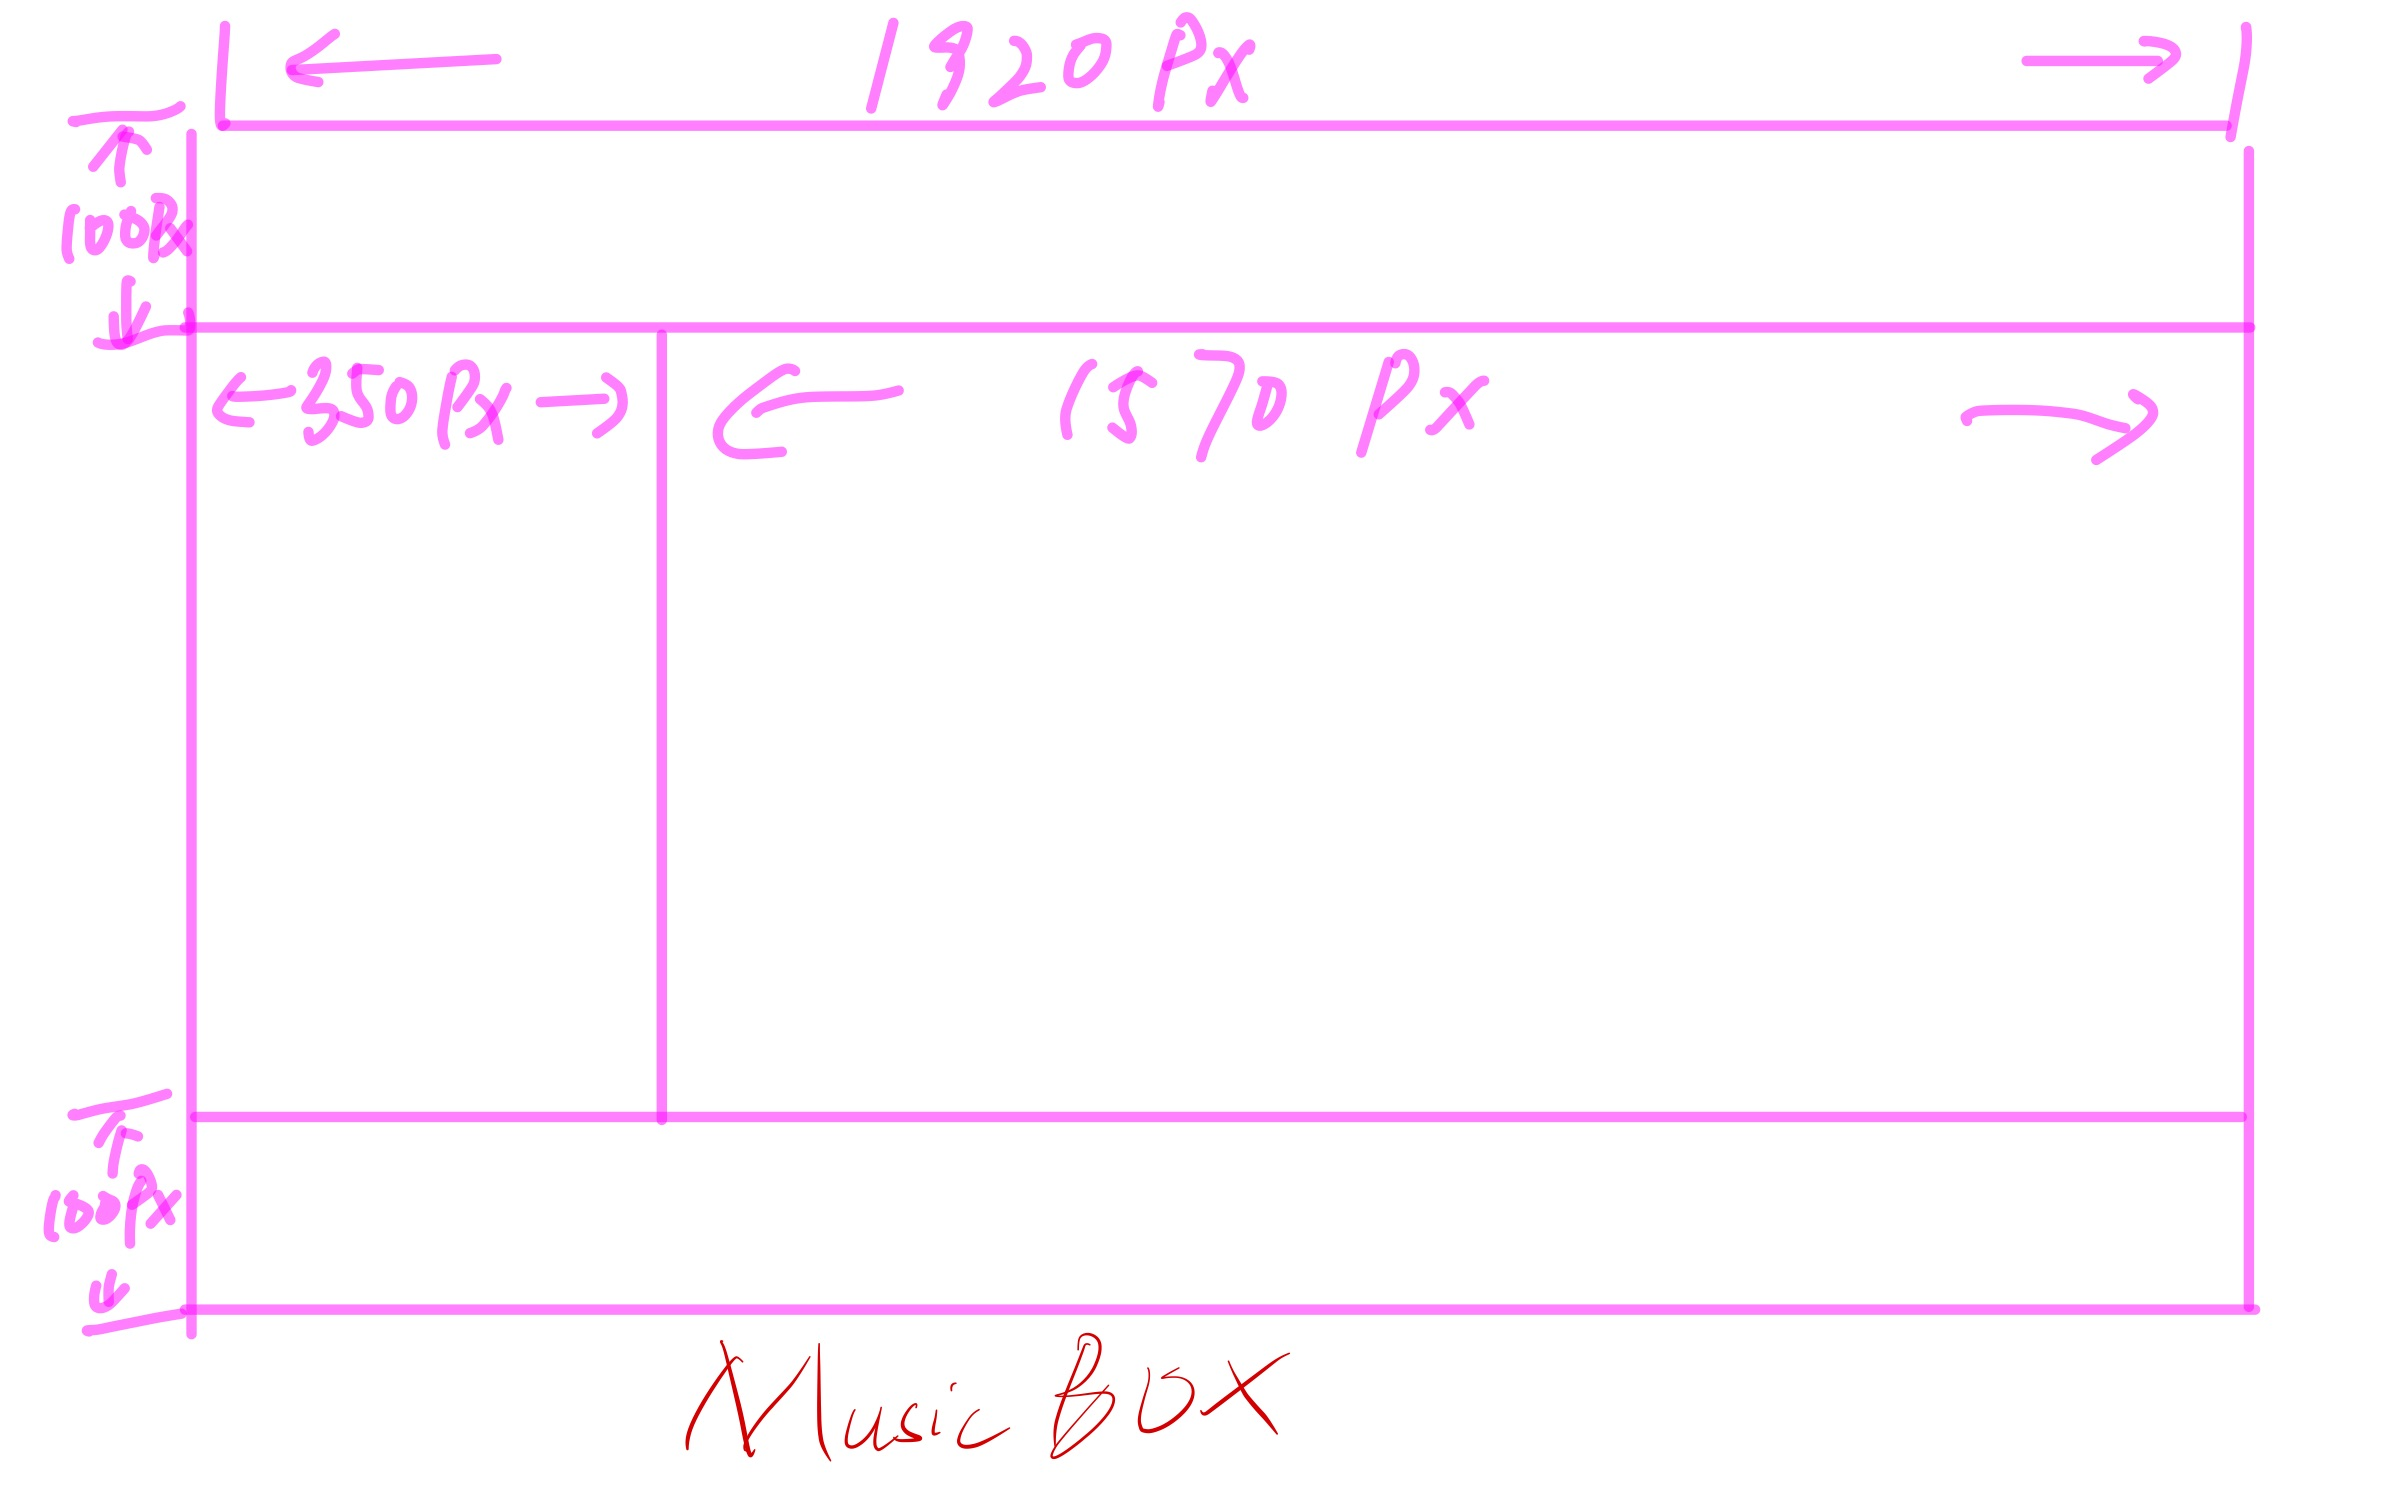 1920 Px
100Px
350Px
1570 Px
100Px
Music Box